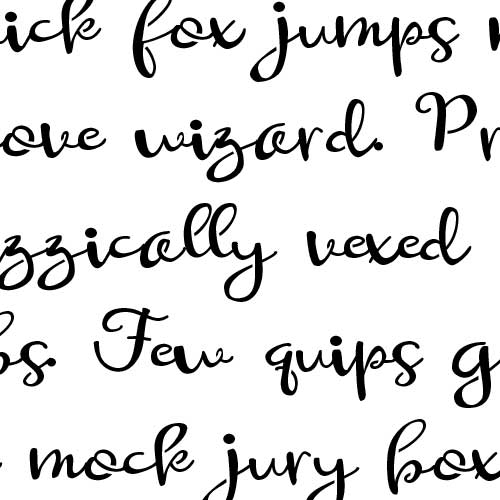 ick fox jumps n
ove wizard. Pr
zzically vexed
bs. Few quips g
mock jury box